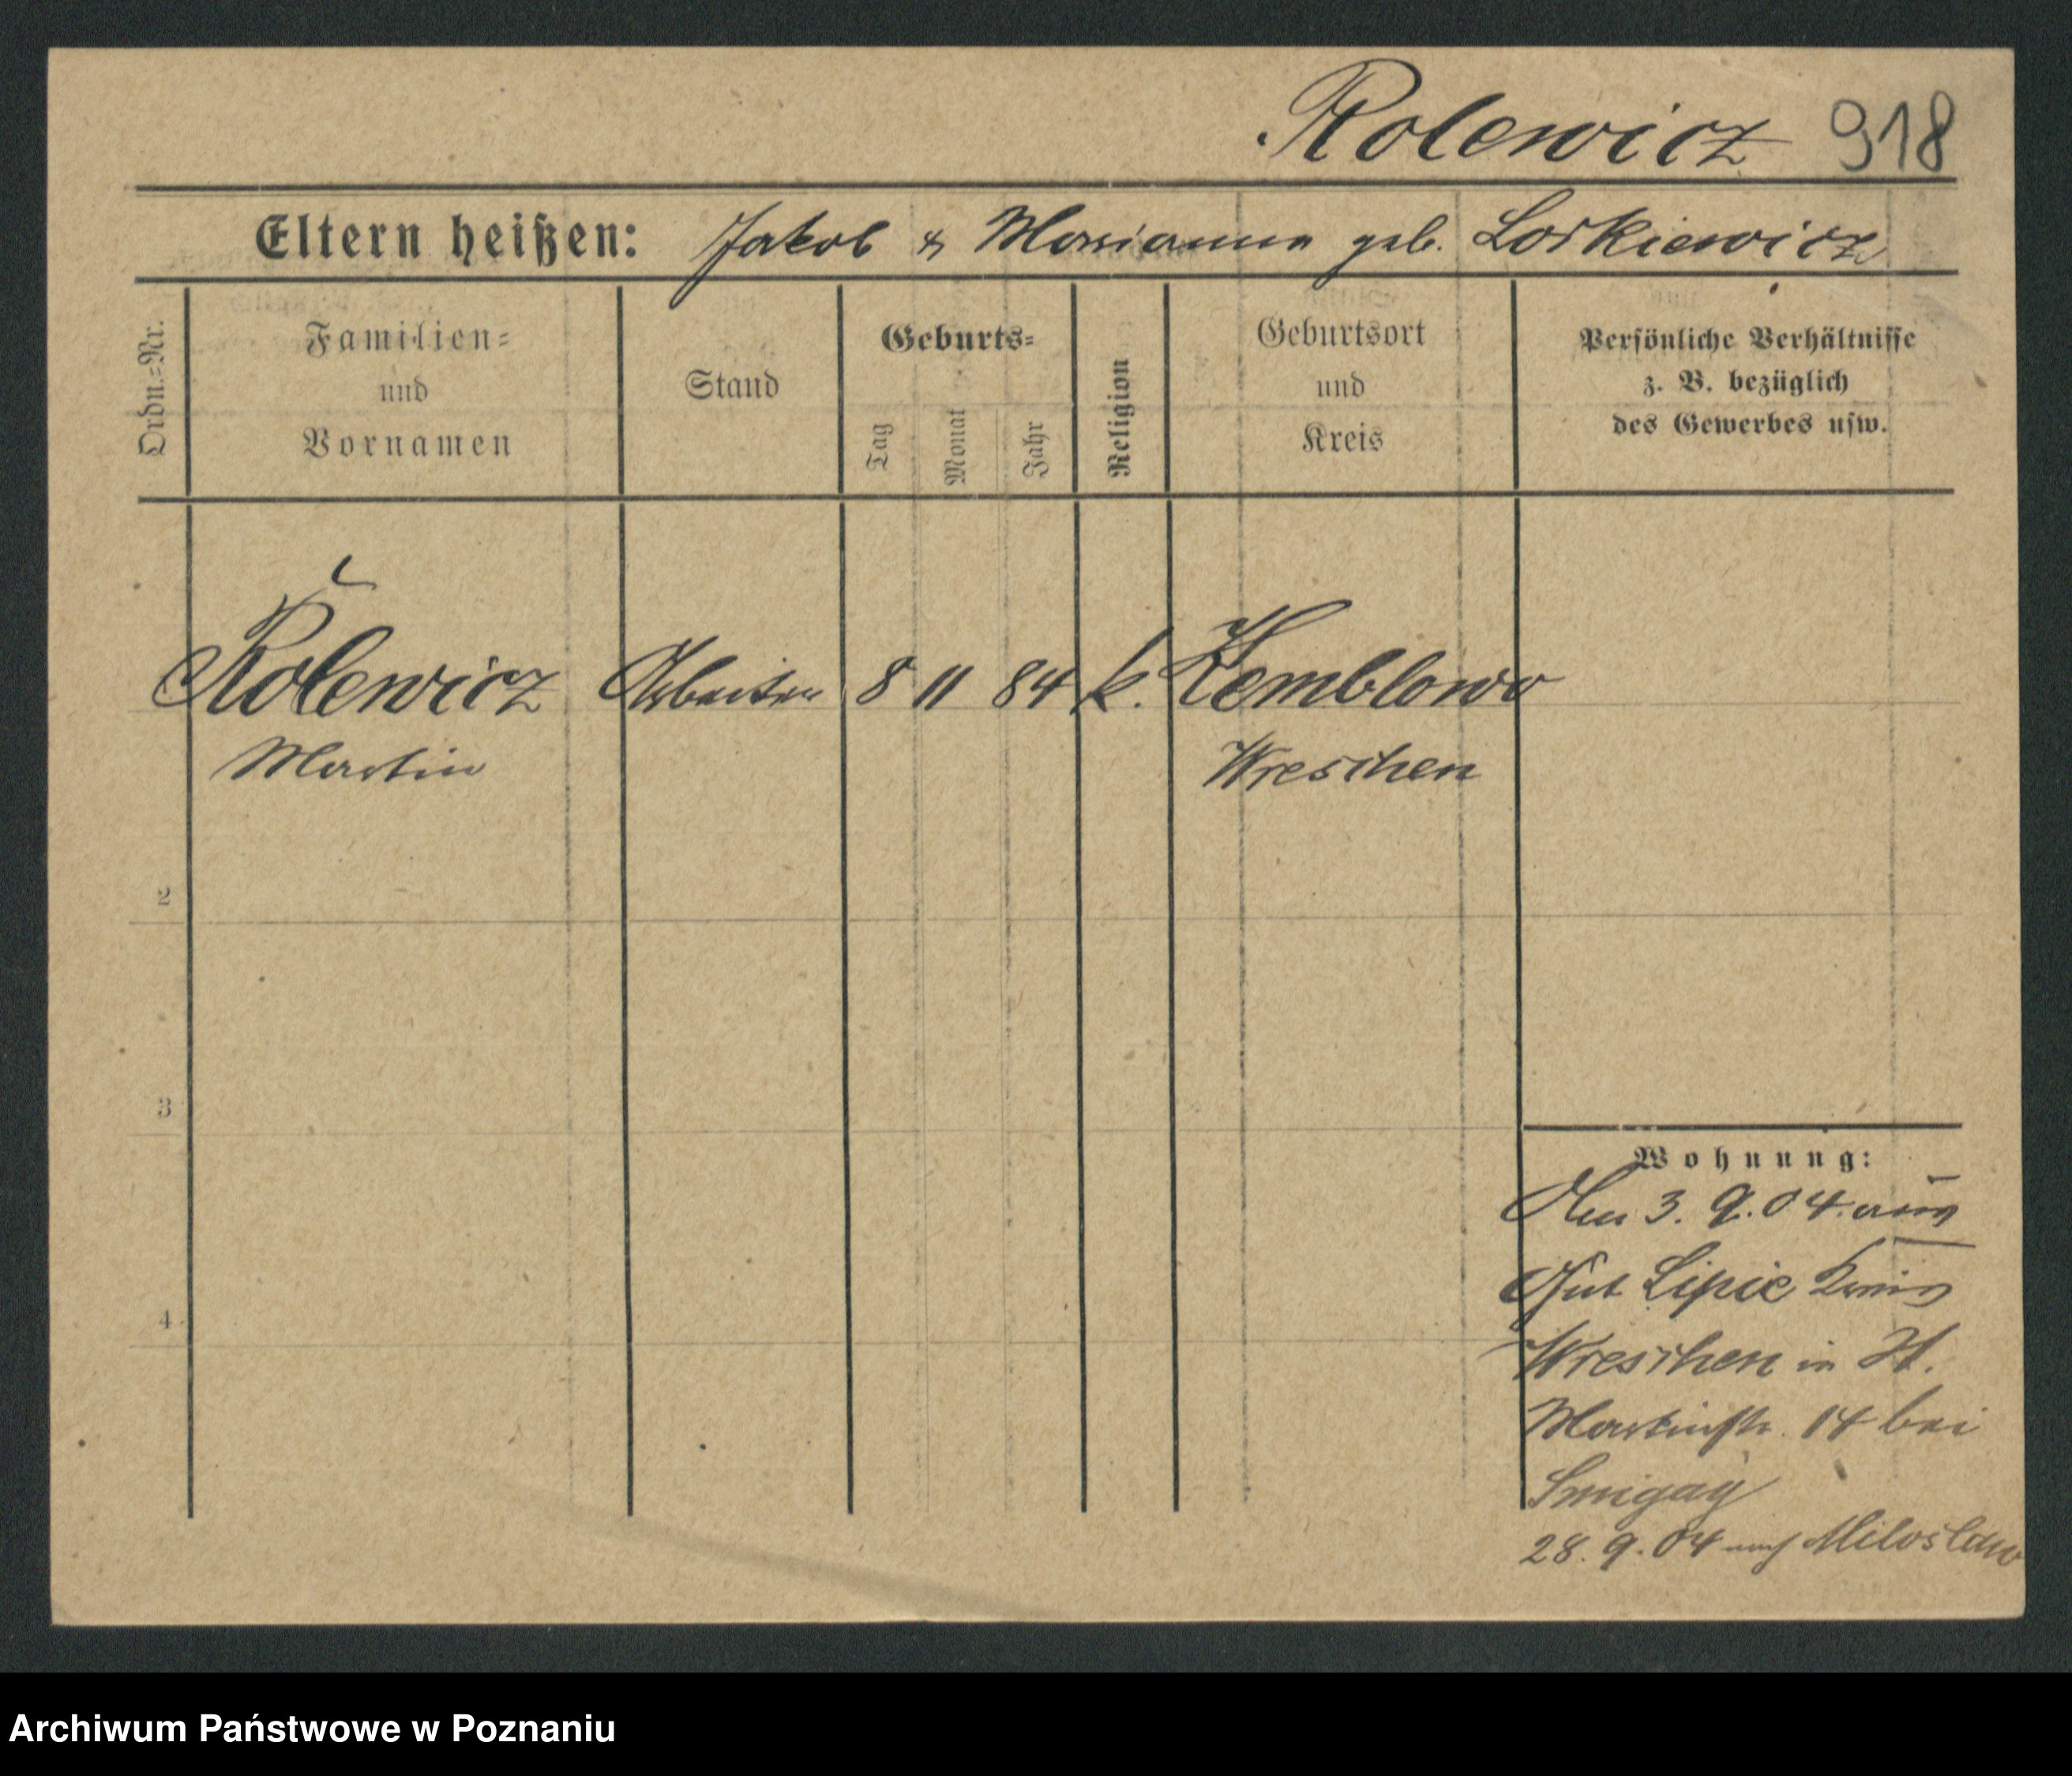 Rolewicz 918
Eltern heißen: Jakob & Marianna geb. Lorkiewicz
Ordn.=Nr.
Familien=
und
Vornamen
Stand
Geburts=
Tag
Monat
Jahr
Religion
Geburtsort
und
Kreis
Persönliche Verhältnisse
z. B. bezüglich
des Gewerbes usw.
Rolewicz Arbeiter 8 11 84 k. Kemblowo
Martin Wreschen
2
3
4
Wohnung:
Am 3. 9. 04 aus
Gut Lipie Kreis
Wreschen in St.
Martinstr. 14 bei
Smigay
28. 9. 04 nach Miloslaw
Archiwum Państwowe w Poznaniu